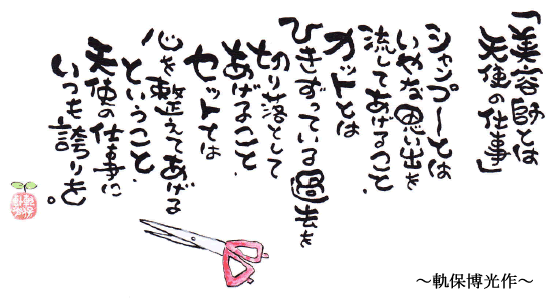 「美容師とは
天使の仕事」
シャンプーとは
いやな思い出を
流してあげること
カットとは
ひきずっている過去を
切り落として
あげること
セットとは
心を整えてあげる
ということ
天使の仕事に
いつも誇りを。
～軌保博光作～